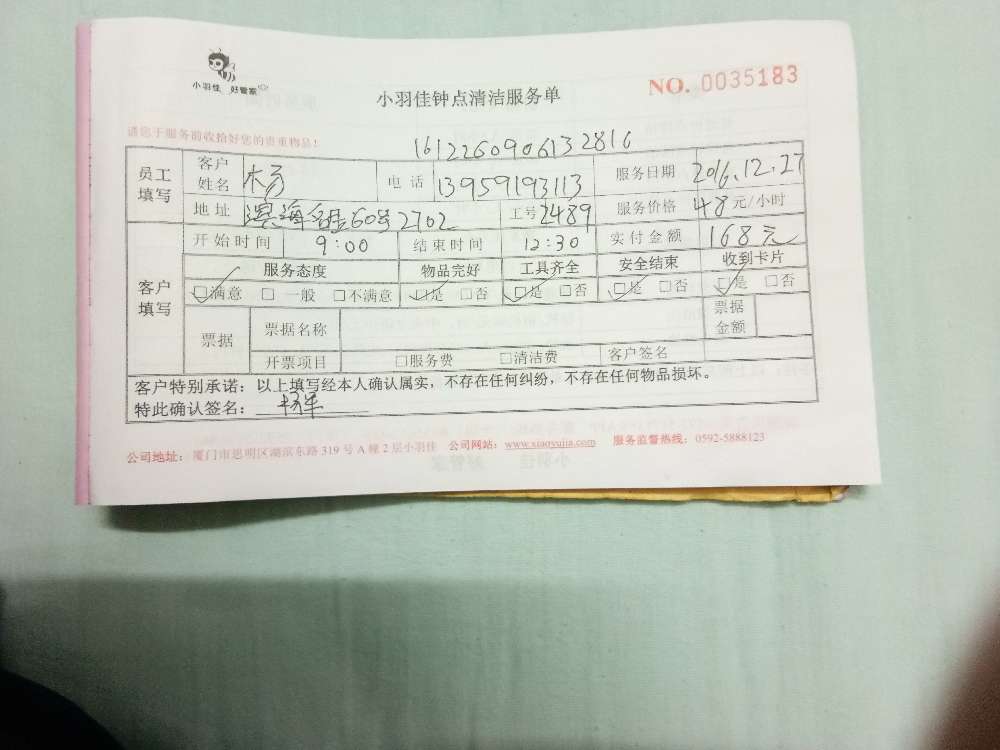 小羽佳 好管家
小羽佳钟点清洁服务单
NO. 0035183
请您于服务前收拾好您的贵重物品!
1612260906132816
员工填写 客户姓名 杨 电话 13959193113 服务日期 2016.12.27
地址 滨海名居60号2702 工号 2489 服务价格 48元/小时
客户填写 开始时间 9:00 结束时间 12:30 实付金额 168元
服务态度 物品完好 工具齐全 安全结束 收到卡片
☑满意 □一般 □不满意 ☑是 □否 ☑是 □否 ☑是 □否 ☑是 □否
票据 票据名称 票据金额
开票项目 □服务费 □清洁费 客户签名
客户特别承诺:以上填写经本人确认属实,不存在任何纠纷,不存在任何物品损坏。
特此确认签名:
公司地址:厦门市思明区湖滨东路319号A幢2层小羽佳 公司网站:www.xiaoyujia.com 服务监督热线:0592-5888123